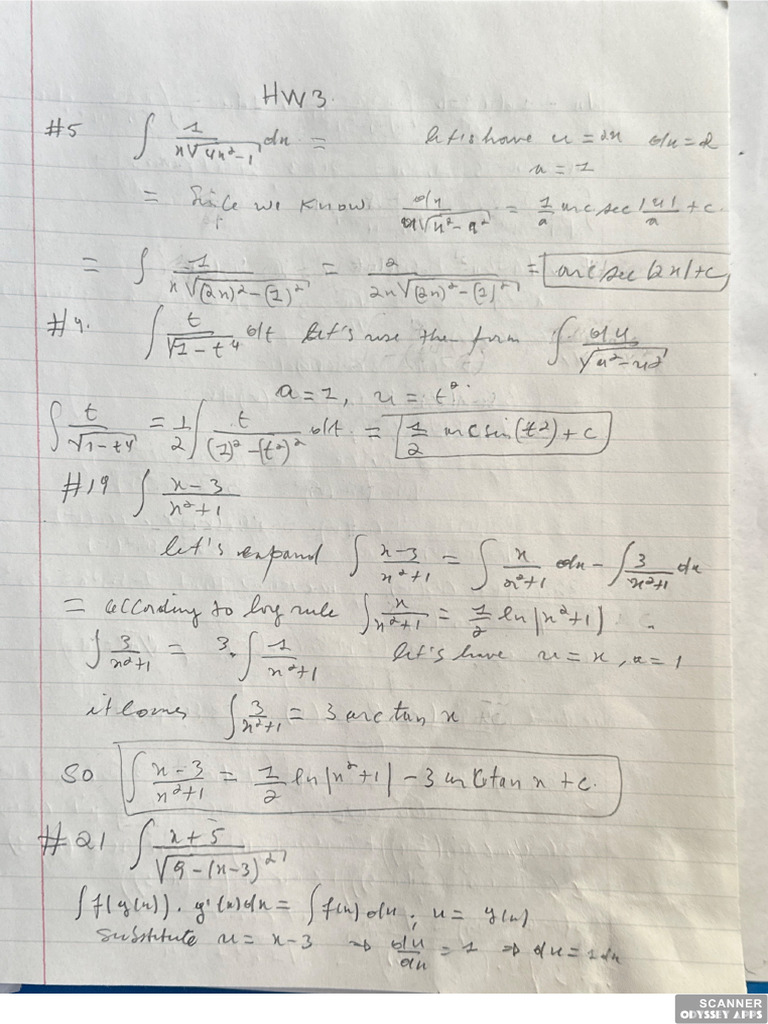 HW3.
#5 ∫ 1/(x√(4x²-1)) dx = let's have u = 2x du = 2
a = 1
= Since we know du/(u√(u²-a²)) = 1/a arcsec |u|/a + c
= ∫ 1/(x√((2x)²-(1)²)) = 2/(2x√((2x)²-(1)²)) = arcsec |2x|+c
#9. ∫ t/√(1-t⁴) dt let's use the form ∫ du/√(a²-u²)
a = 1, u = t².
∫ t/√(1-t⁴) = 1/2 ∫ t/((1)²-(t²)²) dt = 1/2 arcsin(t²)+c
#19 ∫ (x-3)/(x²+1)
let's expand ∫ (x-3)/(x²+1) = ∫ x/(x²+1) dx - ∫ 3/(x²+1) dx
= according to log rule ∫ x/(x²+1) = 1/2 ln|x²+1|.
∫ 3/(x²+1) = 3.∫ 1/(x²+1) let's have u = x, a = 1
it comes ∫ 3/(x²+1) = 3 arctan x
So ∫ (x-3)/(x²+1) = 1/2 ln|x²+1| - 3 arctan x + c.
#21 ∫ (x+5)/√(9-(x-3)²)
∫ f(g(x)). g'(x)dx = ∫ f(u) du, u = g(x)
Substitute u = x-3 ⇒ du/dx = 1 ⇒ du = 1dx
SCANNER
ODYSSEY APPS